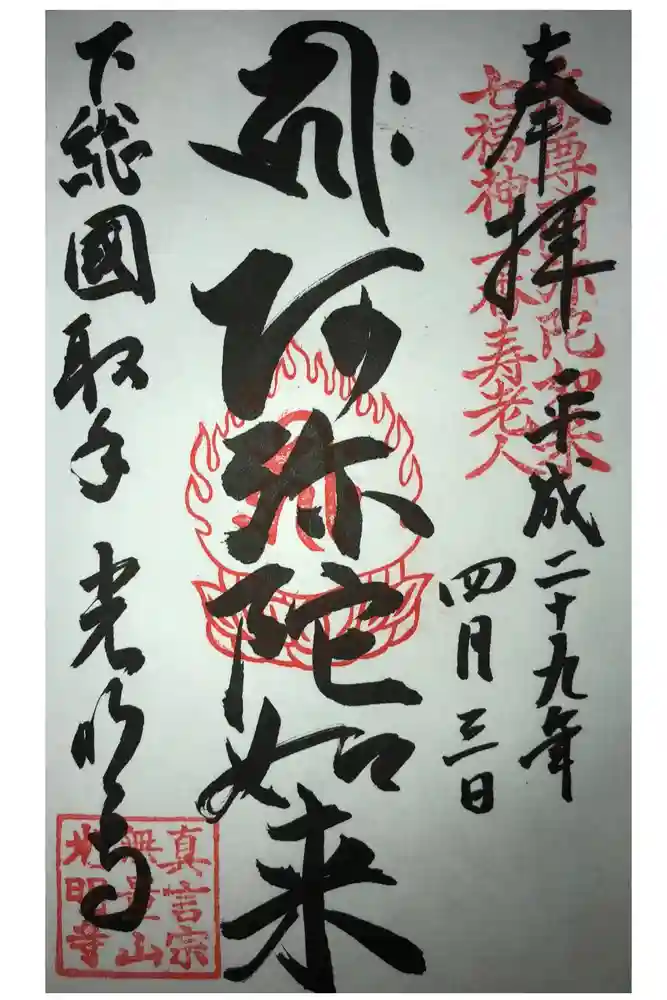 奉拝
平成二十九年
四月三日
尊阿弥陀如来
七福神 寿老人
𑖮𑖿𑖨𑖱𑖾 阿弥陀如来
下総國取手 光明寺
真言宗
無量山
光明寺